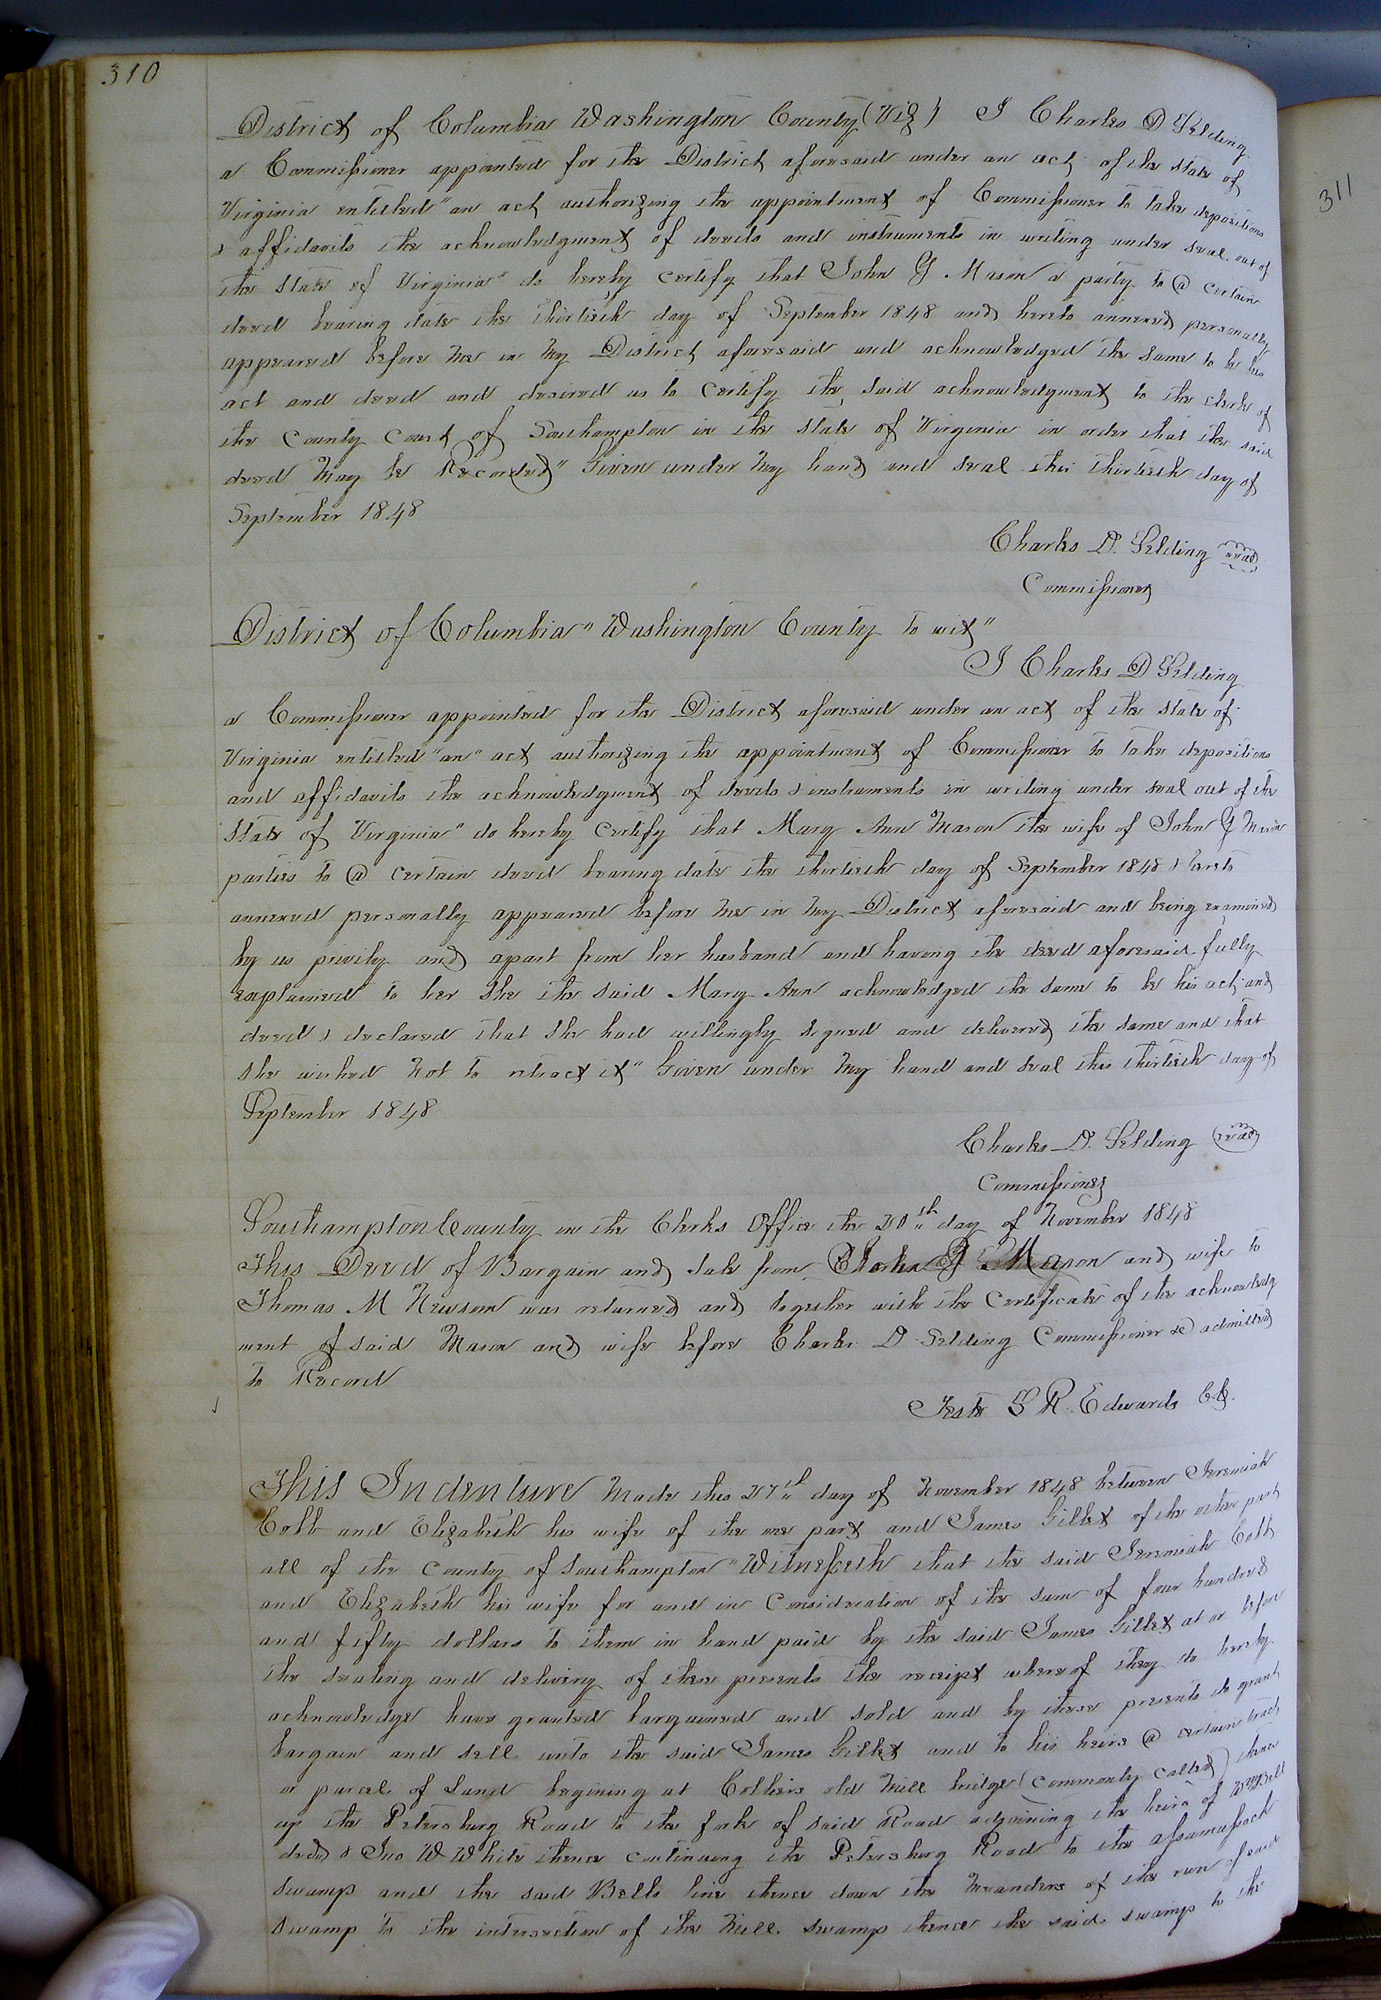 310
District of Columbia Washington County (Viz) I Charles D Selding
a Commissioner appointed for the District aforesaid under an act of the State of
Virginia entitled "an act authorizing the appointment of Commissioner to take depositions
& affidavits the acknowledgment of deeds and instruments in writing under seal out of
the State of Virginia" do hereby certify that John Y Mason a party to @ certain
deed bearing date the thirtieth day of September 1848 and hereto annexed personally
appeared before me in my District aforesaid and acknowledged the same to be his
act and deed and desired us to Certify the said acknowledgment to the clerk of
the County Court of Southampton in the State of Virginia in order that the said
deed may be Recorded" Given under my hand and seal this thirtieth day of
September 1848
Charles D. Selding seal
Commissioner
District of Columbia" Washington County to wit"
I Charles D Selding
a Commissioner appointed for the District aforesaid under an act of the State of
Virginia entitled "an" act authorizing the appointment of Commissioner to take depositions
and affidavits the acknowledgment of deeds & instruments in writing under seal out of the
State of Virginia" do hereby certify that Mary Ann Mason the wife of John Y Mason
parties to @ certain deed bearing date the thirtieth day of September 1848 & hereto
annexed personally appeared before me in my District aforesaid and being examined
by us privily and apart from her husband and having the deed aforesaid fully
explained to her She the said Mary Ann acknowledged the same to be his act and
deed & declared that she had willingly signed and delivered the same and that
she wished not to retract it" Given under my hand and seal this thirtieth day of
September 1848
Charles D. Selding seal
Commissioner
Southampton County in the Clerks Office the 20th day of November 1848
This Deed of Bargain and Sale from John Y Mason and wife to
Thomas M Newsom was returned and together with the Certificate of the acknowledg
ment of said Mason and wife before Charles D Selding Commissioner &c admitted
to Record
Teste L R. Edwards CC.
This Indenture Made this 27th day of November 1848 between Jeremiah
Cobb and Elizabeth his wife of the one part and James Gillet of the other part
all of the County of Southampton "Witnesseth that the said Jeremiah Cobb
and Elizabeth his wife for and in Consideration of the sum of four hundred
and fifty dollars to them in hand paid by the said James Gillet at or before
the sealing and delivery of these presents the receipt whereof they do hereby
acknowledge have granted bargained and sold and by these presents do grant
bargain and sell unto the said James Gillet and to his heirs @ certain tract
or parcel of Land begining at Colliers old Mill bridge (Commonly Called) thence
up the Petersburg Road to the fork of said Road adjoining the heirs of Bell
decd & Jno W White thence continuing the Petersburg Road to the Assamusock
Swamp and the said Bells line thence down the meanders of the run of said
Swamp to the intersection of the Mill swamp thence the said swamp to the
311